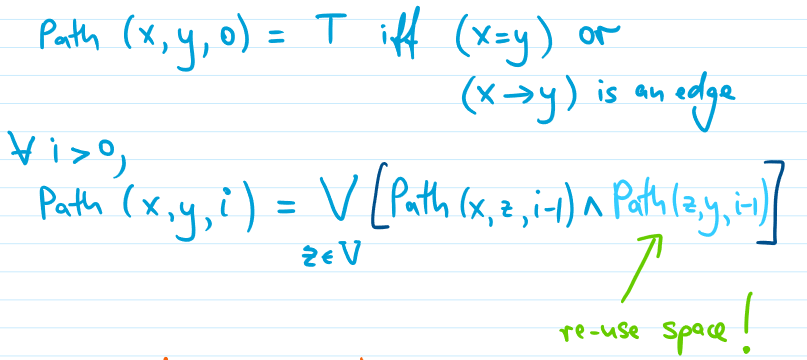 Path (x,y,0) = T iff (x=y) or
(x→y) is an edge
∀ i>0,
Path (x,y,i) = V [Path (x,z,i-1) ∧ Path(z,y,i-1)]
z∈V
re-use space!